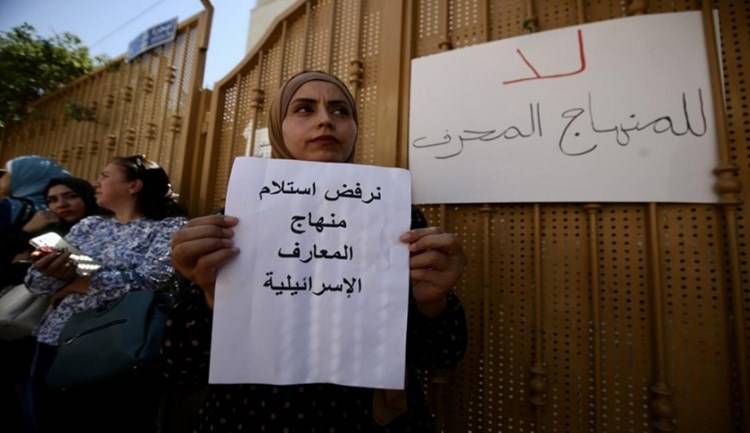 لا
للمنهاج المحرف
نرفض استلام
منهاج
المعارف
الإسرائيلية